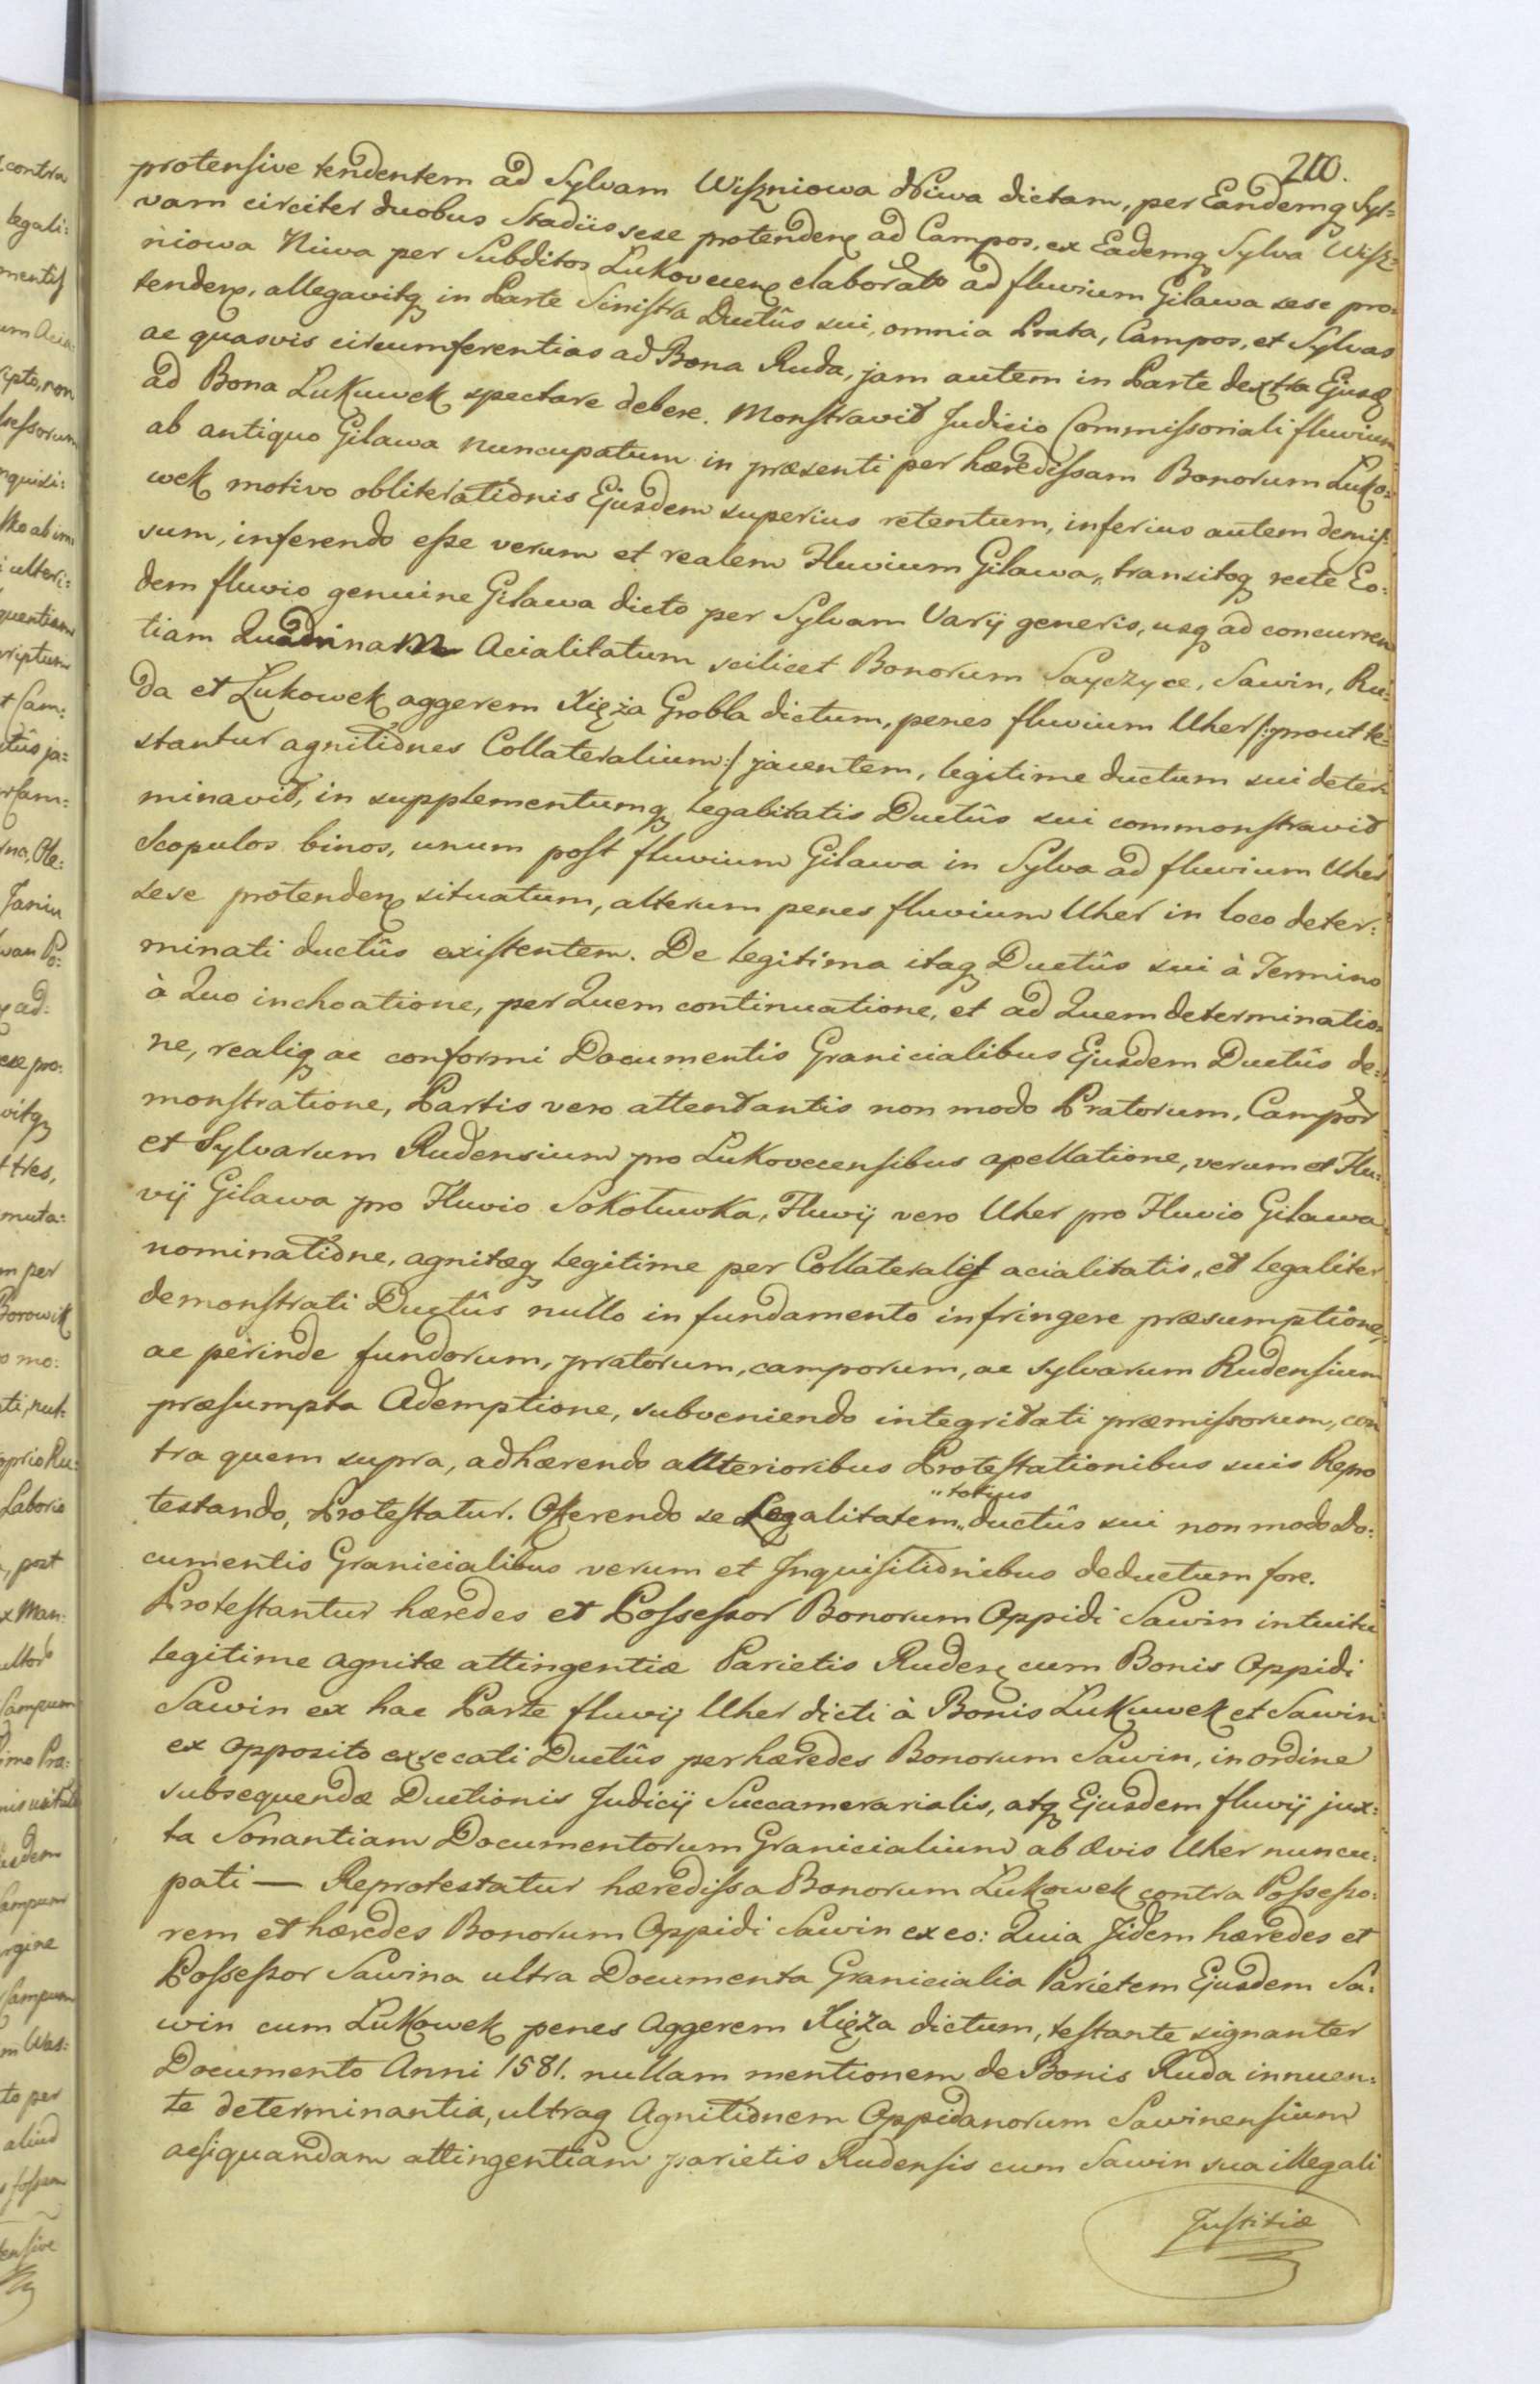 210.
protensive tendentem ad Sylvam Wiszniowa Niwa dictam, per Eandemq Syl=
vam circiter duobus Stadiis sese protendenɇ ad Campos, ex Eademq Sylva Wisz=
niowa Niwa per Subditos Lukovecenɇ elaborato ad fluvium Gilawa sese pro=
tendenɇ, allegavitq in Parte Sinistra Ductûs sui, omnia Prata, Campos, et Sylvas
ac quasvis circumferentias ad Bona Ruda, jam autem in Parte dextra Ejusd
ad Bona Lukuwek spectare debere. Monstravit Judicio Commissoriali fluvium
ab antiquo Gilawa nuncupatum in præsenti per hæredissam Bonorum Luko=
wek motivo obliterationis Ejusdem superius retentum, inferius autem demis=
sum, inferendo esse verum et realem Fluvium Gilawa, transitoq recte Eo=
dem fluvio genuine Gilawa dicto per Sylvam Varij generis, usq ad concurren
tiam Quadrinam Acialitatum scilicet Bonorum Sayczyce, Sawin, Ru=
da et Lukowek aggerem Xięża Grobla dictum, penes fluvium Uher /: prout te=
stantur agnitiones Collateralium :/ jacentem, legitime ductum sui deter=
minavit, in supplementumq legalitatis Ductûs sui commonstravit
Scopulos binos, unum post fluvium Gilawa in Sylva ad fluvium Uher
sese protendenɇ situatum, alterum penes fluvium Uher in loco deter=
minati ductûs existentem. De legitima itaq Ductûs sui à Termino
à Quo inchoatione, per Quem continuatione, et ad Quem determinatio=
ne, realiq ac conformi Documentis Granicialibus Ejusdem Ductûs de=
monstratione, Partis vero attentantis non modo Pratorum, Campor
et Sylvarum Rudensium pro Lukovecensibus apellatione, verum et Flu=
vij Gilawa pro Fluvio Sokotuwka, Fluvij vero Uher pro Fluvio Gilawa
nominatione, agnitæq legitime per Collaterales acialitatis, et legaliter
demonstrati Ductûs nullo in fundamento infringere præsumptione,
ac perinde fundorum, pratorum, camporum, ac sylvarum Rudensium
præsumpta Ademptione, subveniendo integritati præmissorum, con
tra quem supra, adhærendo anterioribus Protestationibus suis Repro
testando, Protestatur. Offerendo se Legalitatem „ ductûs sui non modo Do=
„totius
cumentis Granicialibus verum et Inquisitionibus deductum fore.
Protestantur hæredes et Possessor Bonorum Oppidi Sawin intuitu
legitime agnitæ attingentiæ Parietis Rudenɇ cum Bonis Oppidi
Sawin ex hac Parte fluvij Uher dicti à Bonis Lukuwek et Sawin
ex opposito exsecati Ductûs per hæredes Bonorum Sawin, in ordine
subsequendæ Ductionis Judicij Succamerarialis, atq Ejusdem fluvij jux=
ta Sonantiam Documentorum Granicialium ab ævis Uher nuncu=
pati — Reprotestatur hæredissa Bonorum Lukowek contra Possesso=
rem et hæredes Bonorum Oppidi Sawin ex eo: Quia Jidem hæredes et
Possessor Sawina ultra Documenta Granicialia Parietem Ejusdem Sa=
win cum Lukowek penes Aggerem Xięża dictum, testante signanter
Documento Anni 1581. nullam mentionem de Bonis Ruda innuen=
te determinantia, ultraq Agnitionem Oppidanorum Sawinensium
acsiquandam attingentiam parietis Rudensis cum Sawin sua illegali
Justitiæ